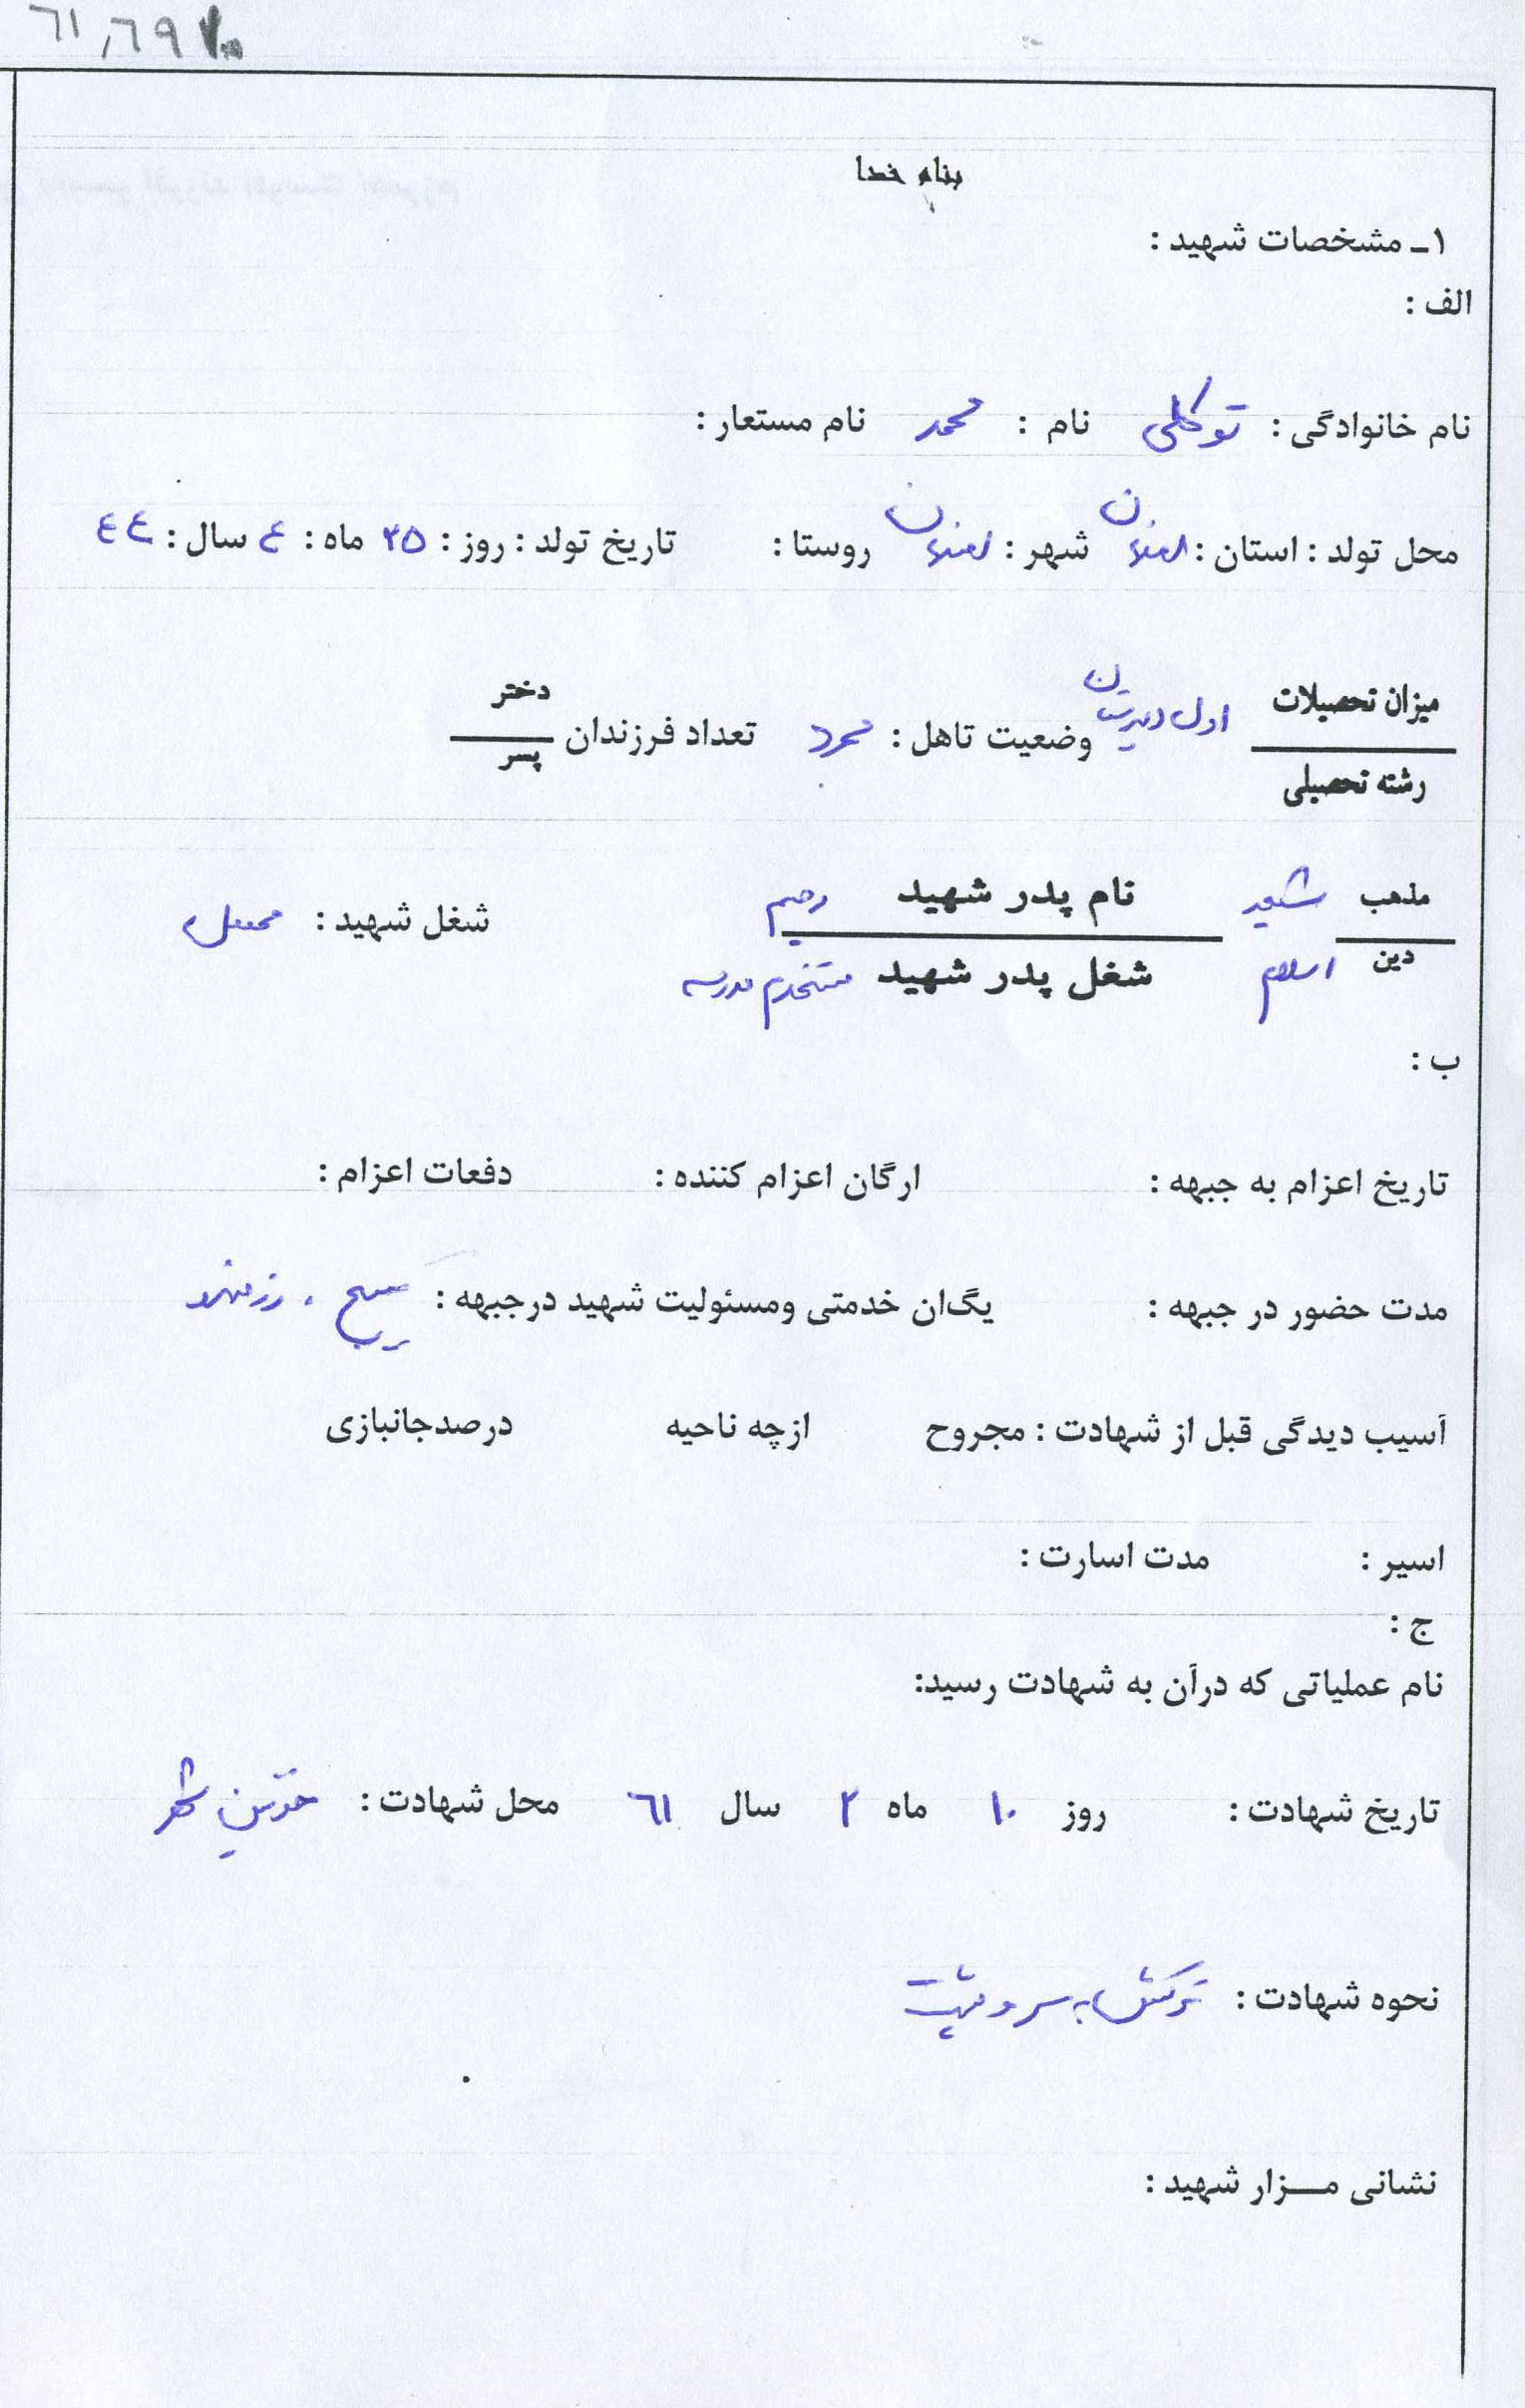 ٦١,٦٩
بنام خدا
۱ـ مشخصات شهید :
الف :
نام خانوادگی : توکلی نام : محمد نام مستعار :
محل تولد : استان : اصفهان شهر : اصفهان روستا : تاریخ تولد : روز : ۲۵ ماه : ٤ سال : ٤٤
میزان تحصیلات اول دبیرستان وضعیت تاهل : مجرد تعداد فرزندان دختر
رشته تحصیلی پسر
مذهب شیعه نام پدر شهید رحیم شغل شهید : محصل
دین اسلام شغل پدر شهید مستخدم مدرسه
ب :
تاریخ اعزام به جبهه : ارگان اعزام کننده : دفعات اعزام :
مدت حضور در جبهه : یگان خدمتی ومسئولیت شهید درجبهه : بسیج ، رزمنده
آسیب دیدگی قبل از شهادت : مجروح ازچه ناحیه درصدجانبازی
اسیر : مدت اسارت :
ج :
نام عملیاتی که درآن به شهادت رسید:
تاریخ شهادت : روز ۱۰ ماه ۲ سال ٦۱ محل شهادت : خونین شهر
نحوه شهادت : ترکش به سر و پشت
نشانی مـــزار شهید :